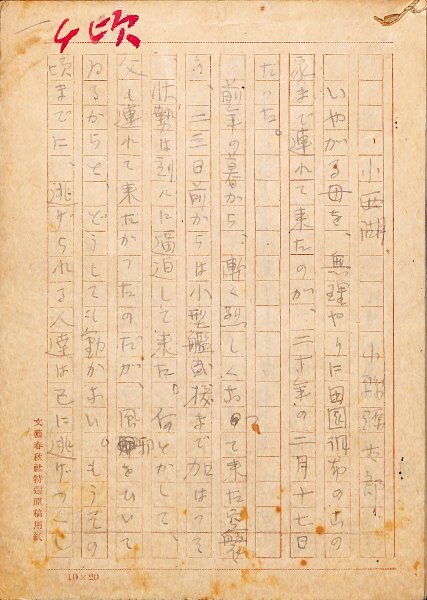 小西湖 太郎
いやがる母を、無理やりに田園調布のこの
家まで連れて来たのが、二十年の二月十七日
だつた。
前年の暮から、漸く烈しくなつて来た空襲
に、二三日前からは小型艦載機まで加はつて
状勢は刻々に逼迫して来た。何とかして、
父も連れて来たかつたのだが、風邪をひいて
ゐるからと、どうしても動かない。もうその
頃までに、逃げられる人達は已に逃げつくし
文藝春秋社特選原稿用紙
10×20